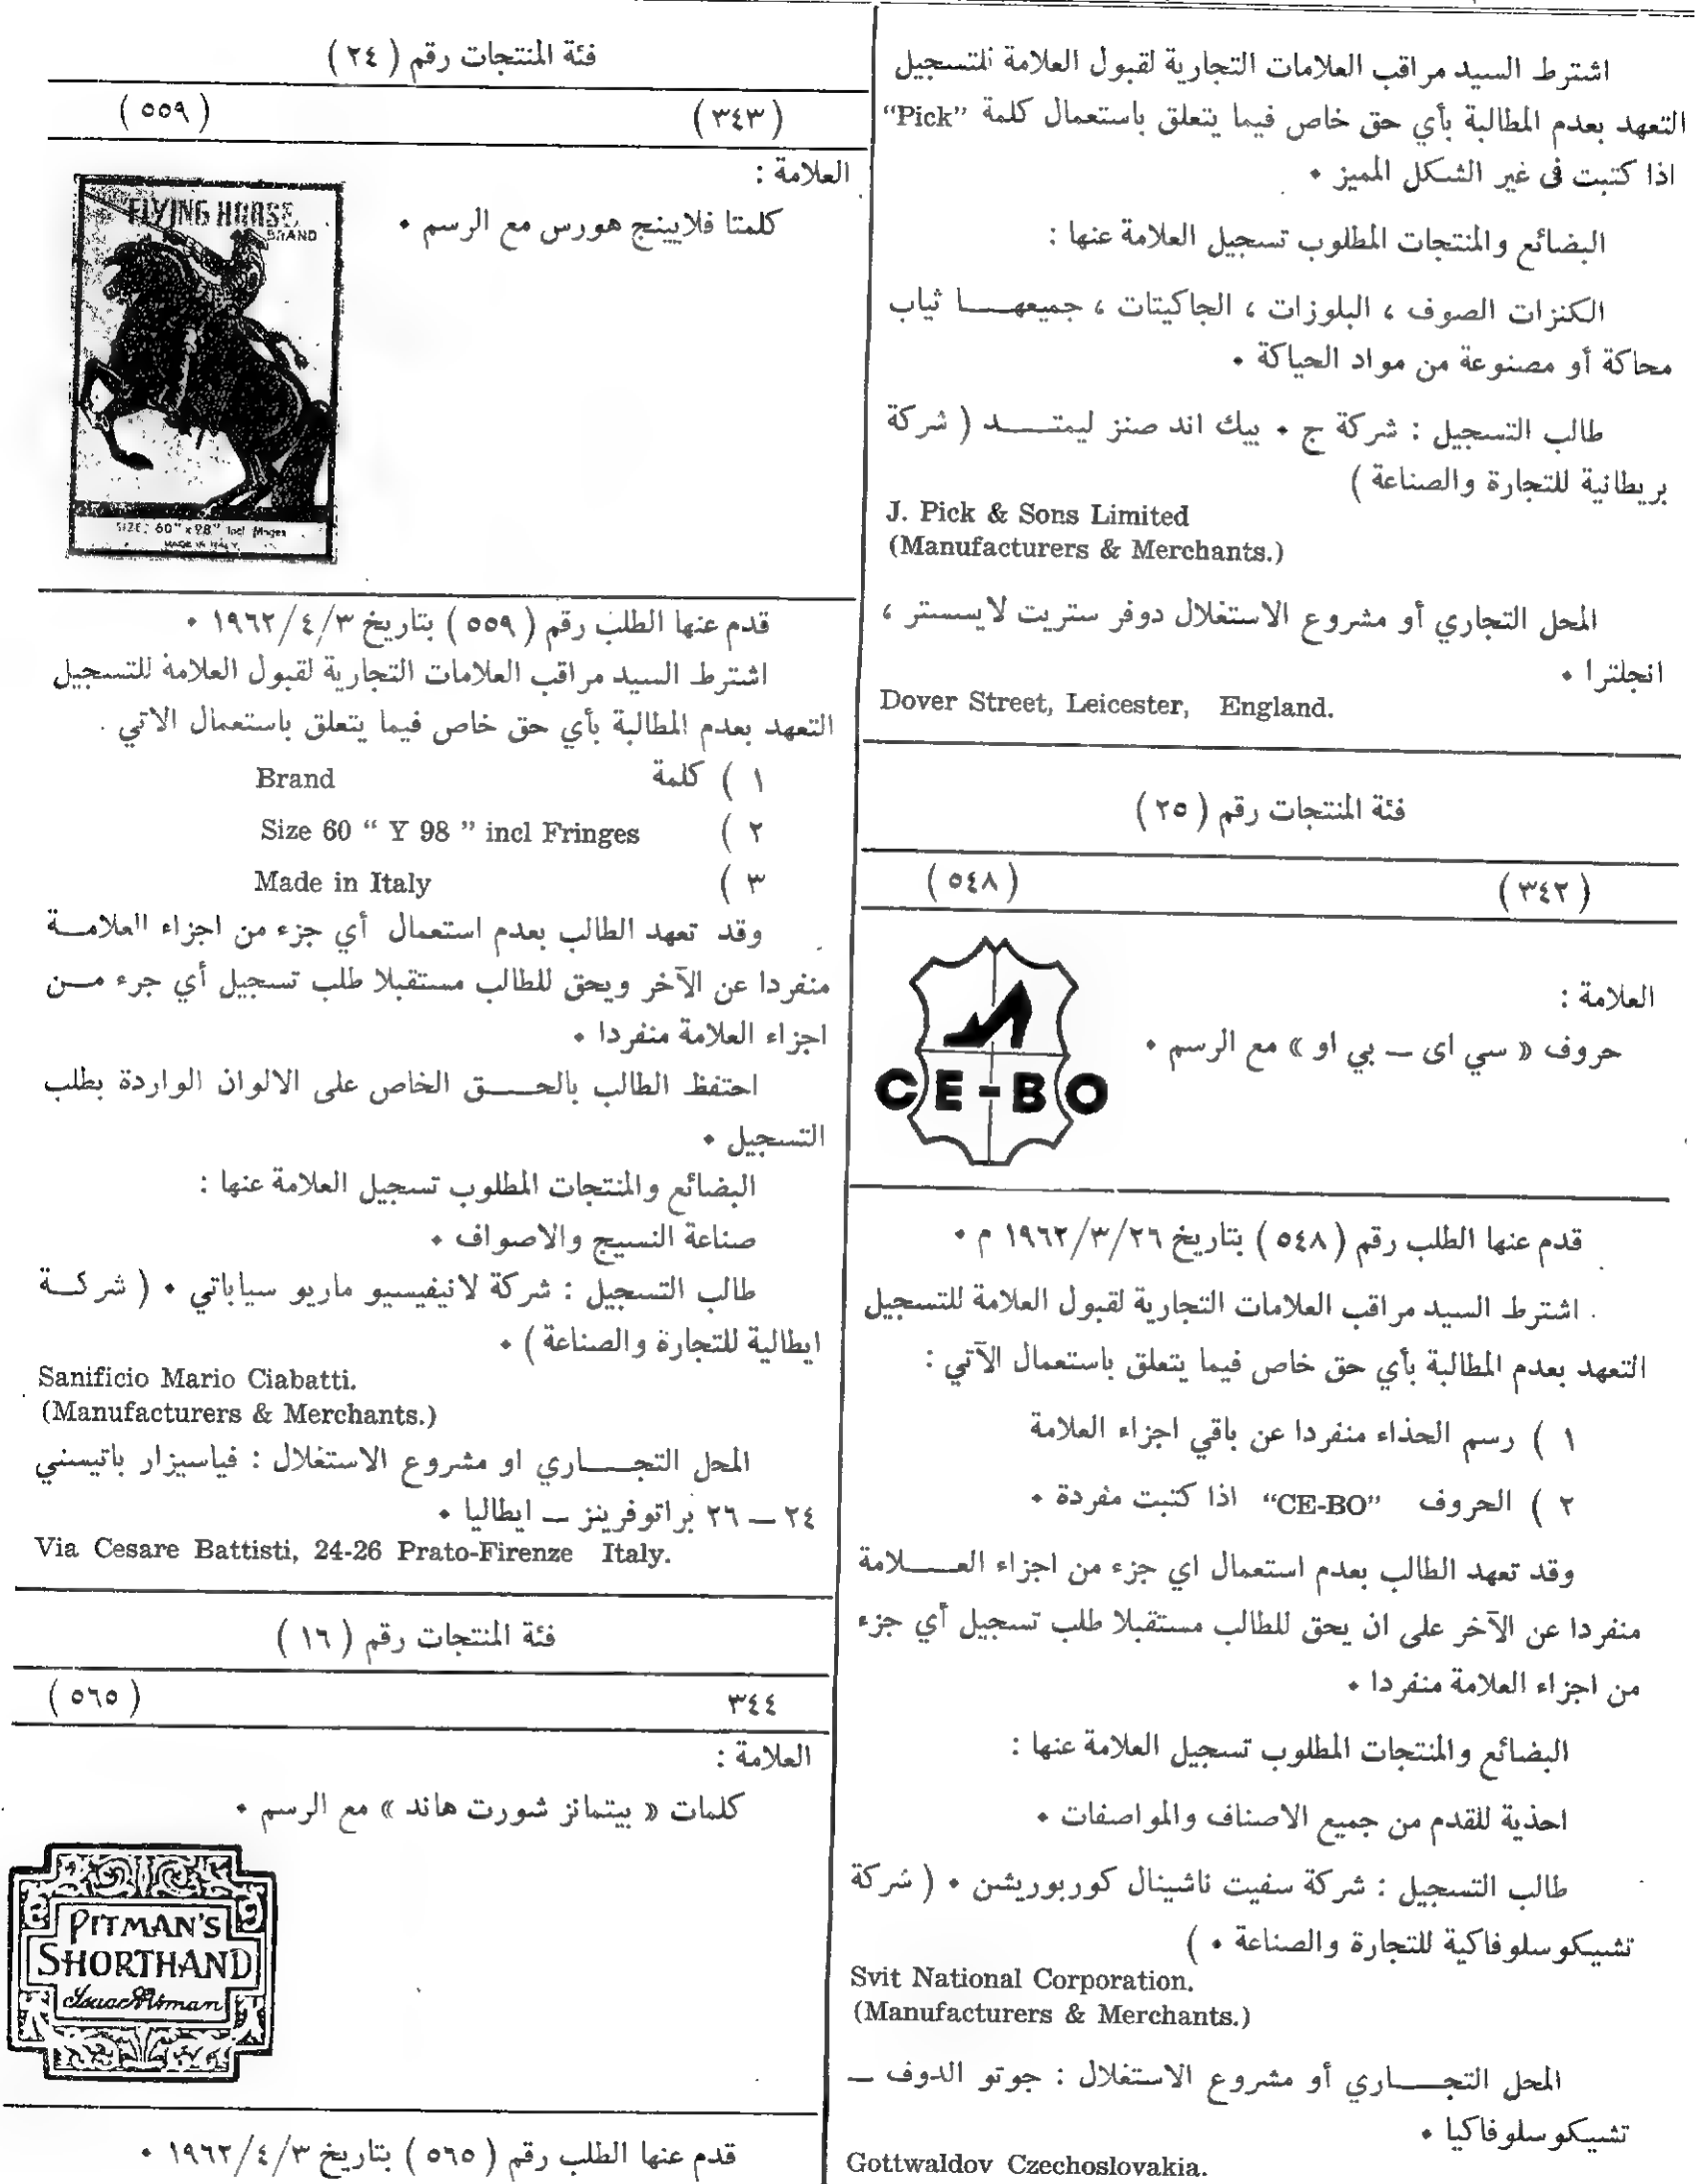 اشترط السيد مراقب العلامات التجارية لقبول العلامة للتسجيل
التعهد بعدم المطالبة بأي حق خاص فيما يتعلق باستعمال كلمة "Pick"
اذا كتبت فى غير الشكل المميز .
البضائع والمنتجات المطلوب تسجيل العلامة عنها :
الكنزات الصوف ، البلوزات ، الجاكيتات ، جميعهـــا ثياب
محاكة أو مصنوعة من مواد الحياكة .
طالب التسجيل : شركة ج . بيك اند صنز ليمتـــد ( شركة
بريطانية للتجارة والصناعة )
J. Pick & Sons Limited
(Manufacturers & Merchants.)
المحل التجاري أو مشروع الاستغلال دوفر ستريت لايسستر ،
انجلترا .
Dover Street, Leicester, England.
فئة المنتجات رقم ( ٢٥ )
( ٣٤٢ ) ( ٥٤٨ )
العلامة :
حروف « سي اى — بي او » مع الرسم .
CE-BO
قدم عنها الطلب رقم ( ٥٤٨ ) بتاريخ ١٩٦٢/٣/٢٦ م .
اشترط السيد مراقب العلامات التجارية لقبول العلامة للتسجيل
التعهد بعدم المطالبة بأي حق خاص فيما يتعلق باستعمال الآتي :
١ ) رسم الحذاء منفردا عن باقي اجزاء العلامة
٢ ) الحروف "CE-BO" اذا كتبت مفردة .
وقد تعهد الطالب بعدم استعمال اي جزء من اجزاء العـــلامة
منفردا عن الآخر على ان يحق للطالب مستقبلا طلب تسجيل أي جزء
من اجزاء العلامة منفردا .
البضائع والمنتجات المطلوب تسجيل العلامة عنها :
احذية للقدم من جميع الاصناف والمواصفات .
طالب التسجيل : شركة سفيت ناشينال كوربوريشن . ( شركة
تشيكوسلوفاكية للتجارة والصناعة . )
Svit National Corporation.
(Manufacturers & Merchants.)
المحل التجـــاري أو مشروع الاستغلال : جوتو الدوف —
تشيكوسلوفاكيا .
Gottwaldov Czechoslovakia.
فئة المنتجات رقم ( ٢٤ )
( ٣٤٣ ) ( ٥٥٩ )
العلامة :
كلمتا فلايينج هورس مع الرسم .
FLYING HORSE
BRAND
SIZE: 60" x 98" Incl Fringes
MADE IN ITALY
قدم عنها الطلب رقم ( ٥٥٩ ) بتاريخ ١٩٦٢/٤/٣ .
اشترط السيد مراقب العلامات التجارية لقبول العلامة للتسجيل
التعهد بعدم المطالبة بأي حق خاص فيما يتعلق باستعمال الاتي .
١ ) كلمة Brand
٢ ) Size 60 “ Y 98 ” incl Fringes
٣ ) Made in Italy
وقد تعهد الطالب بعدم استعمال أي جزء من اجزاء العلامـــة
منفردا عن الآخر ويحق للطالب مستقبلا طلب تسجيل أي جرء مـــن
اجزاء العلامة منفردا .
احتفظ الطالب بالحـــق الخاص على الالوان الواردة بطلب
التسجيل .
البضائع والمنتجات المطلوب تسجيل العلامة عنها :
صناعة النسيج والاصواف .
طالب التسجيل : شركة لانيفيسيو ماريو سياباتي . ( شركـــة
ايطالية للتجارة والصناعة ) .
Sanificio Mario Ciabatti.
(Manufacturers & Merchants.)
المحل التجـــاري او مشروع الاستغلال : فياسيزار باتيسني
٢٤ — ٢٦ براتوفرينز — ايطاليا .
Via Cesare Battisti, 24-26 Prato-Firenze Italy.
فئة المنتجات رقم ( ١٦ )
٣٤٤ ( ٥٦٥ )
العلامة :
كلمات « بيتمانز شورت هاند » مع الرسم .
PITMAN'S
SHORTHAND
Isaac Pitman
قدم عنها الطلب رقم ( ٥٦٥ ) بتاريخ ١٩٦٢/٤/٣ .